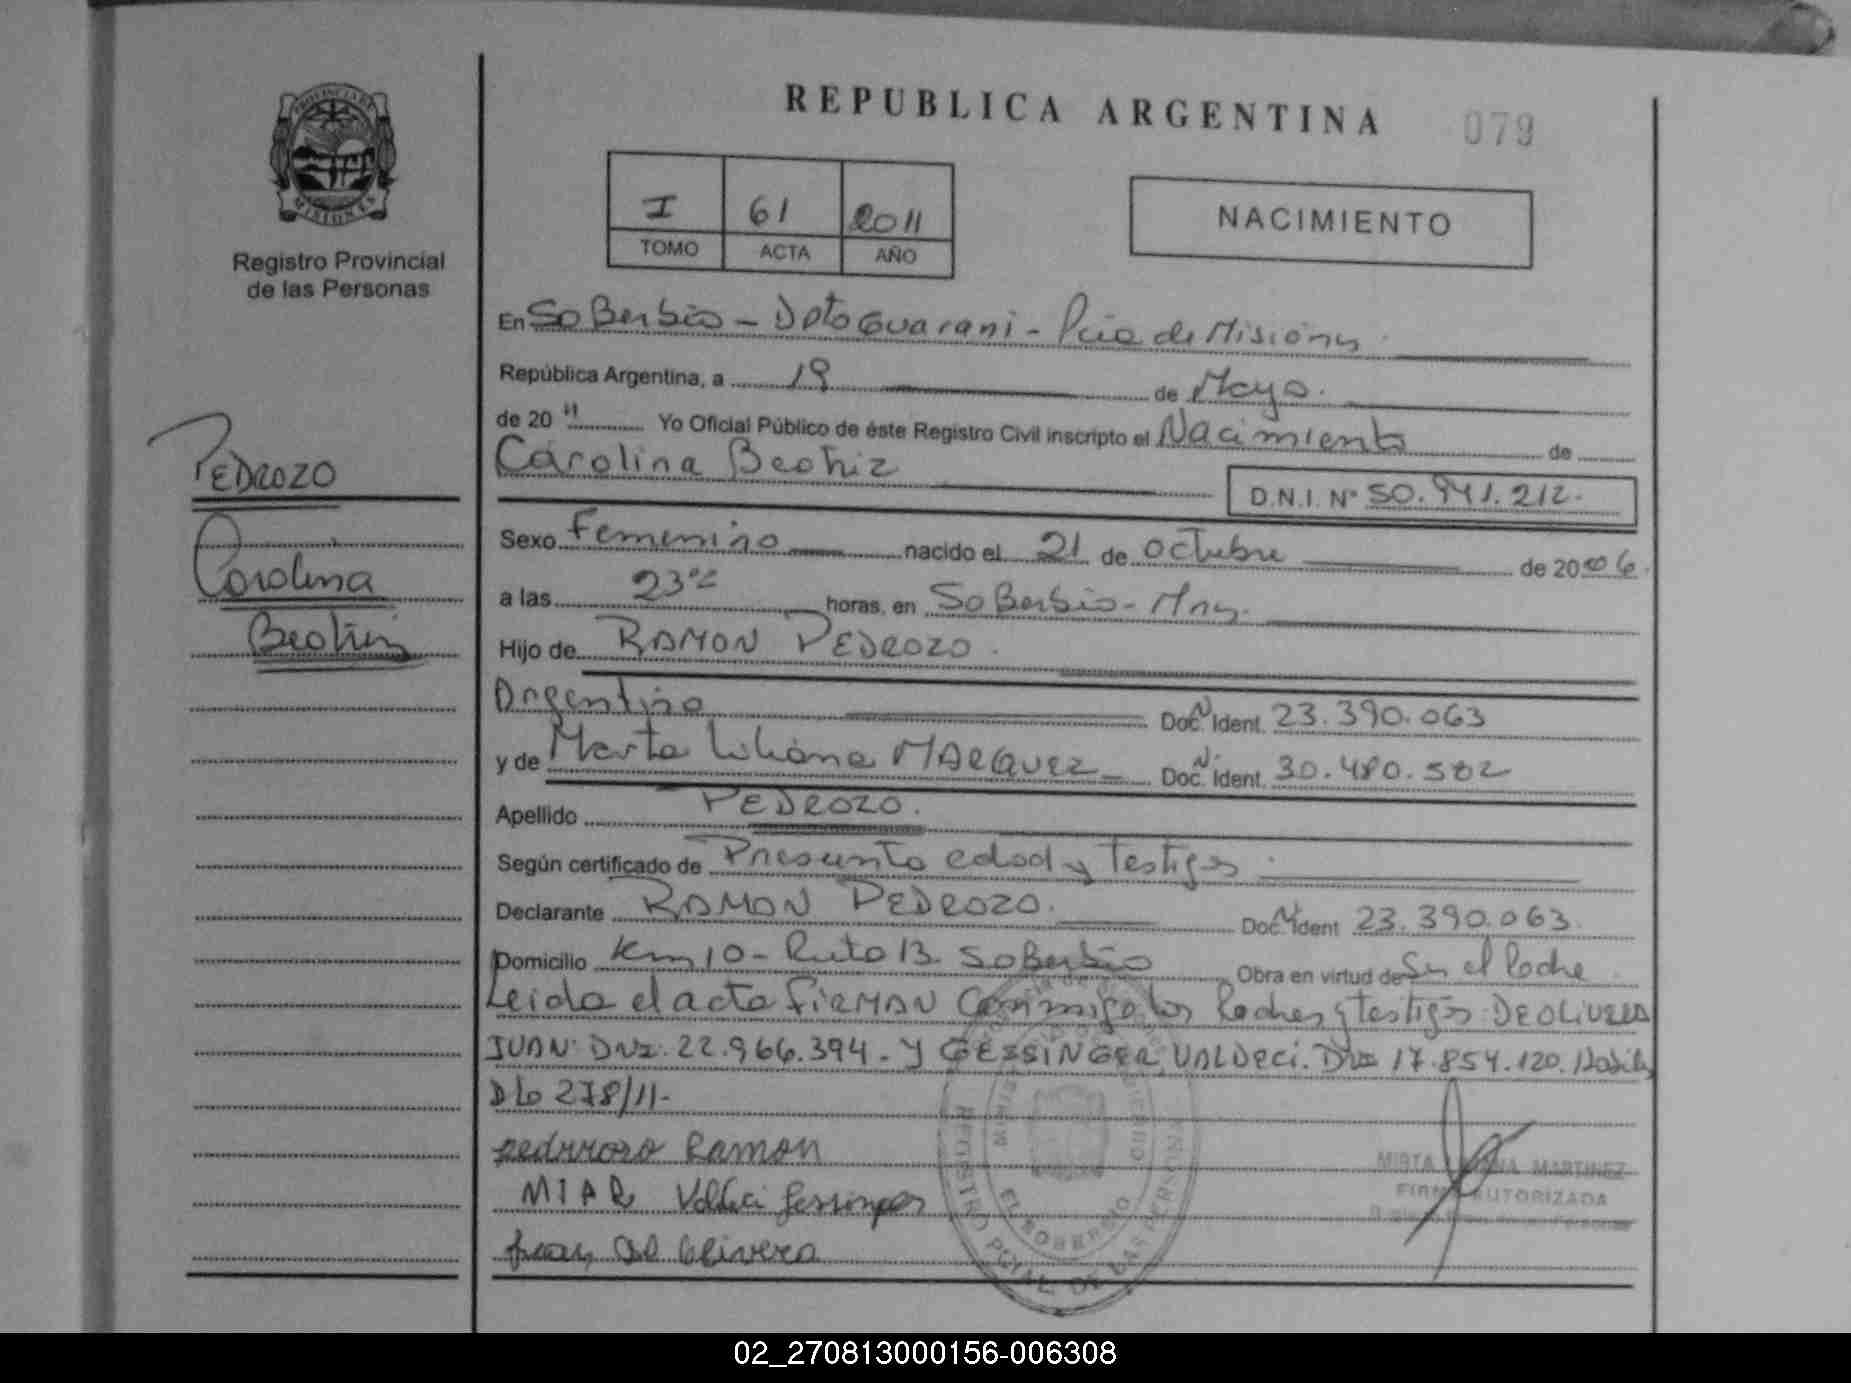 REPUBLICA ARGENTINA
079
PROVINCIA DE
MISIONES
Registro Provincial
de las Personas
I 61 2011
TOMO ACTA AÑO
NACIMIENTO
En Soberbio - Dpto Guarani - Pcia de Misiones
República Argentina, a 19 de Mayo.
de 20 11 Yo Oficial Público de éste Registro Civil inscripto el Nacimiento de
Carolina Beatriz
D.N.I. Nº 50.941.212.
PEDROZO
Carolina
Beatriz
Sexo Femenino nacido el 21 de octubre de 2006.
a las 23 horas, en Soberbio - Mnes.
Hijo de RAMON PEDROZO.
Argentino Doc. Ident. 23.390.063
y de Marta Liliana MARQUEZ Doc. Ident. 30.480.502
Apellido PEDROZO.
Según certificado de Presunta edad y Testigos.
Declarante RAMON PEDROZO. Doc. Ident 23.390.063.
Domicilio Km 10 - Ruta 13. Soberbio Obra en virtud de Ser el Padre
Leida el acta FIRMAN Conmigo los Padres y testigos: DE OLIVERA
JUAN: DNI: 22.966.394. Y GESSINGER VALDECI. DNI 17.854.120.
278/11.
pedrrozo Ramon
Valdeci Gessinger
Juan De Olivera
MIRTA MARTINEZ
FIRMA AUTORIZADA
REGISTRO PCIAL. DE LAS PERSONAS
EL SOBERBIO
02_270813000156-006308